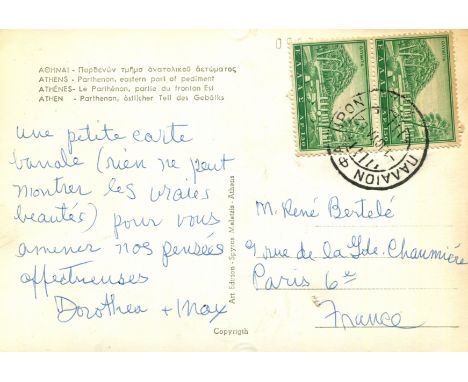 ΑΘΗΝΑΙ - Παρθενών τμήμα ἀνατολικοῦ ἀετώματος
ATHENS - Parthenon, eastern part of pediment
ATHÈNES - Le Parthénon, partie du fronton Est
ATHEN - Parthenon, östlicher Teil des Gebälks
une petite carte
banale (rien ne peut
montrer les vraies
beautés) pour vous
amener nos pensées
affectueuses
Dorothea + Max
Art Edition - Spyros Meletzis - Athens
Copyrigth
ΠΑΛΑΙΟΝ
M. René Bertelé
9 rue de la Gde. Chaumière
Paris 6e
France